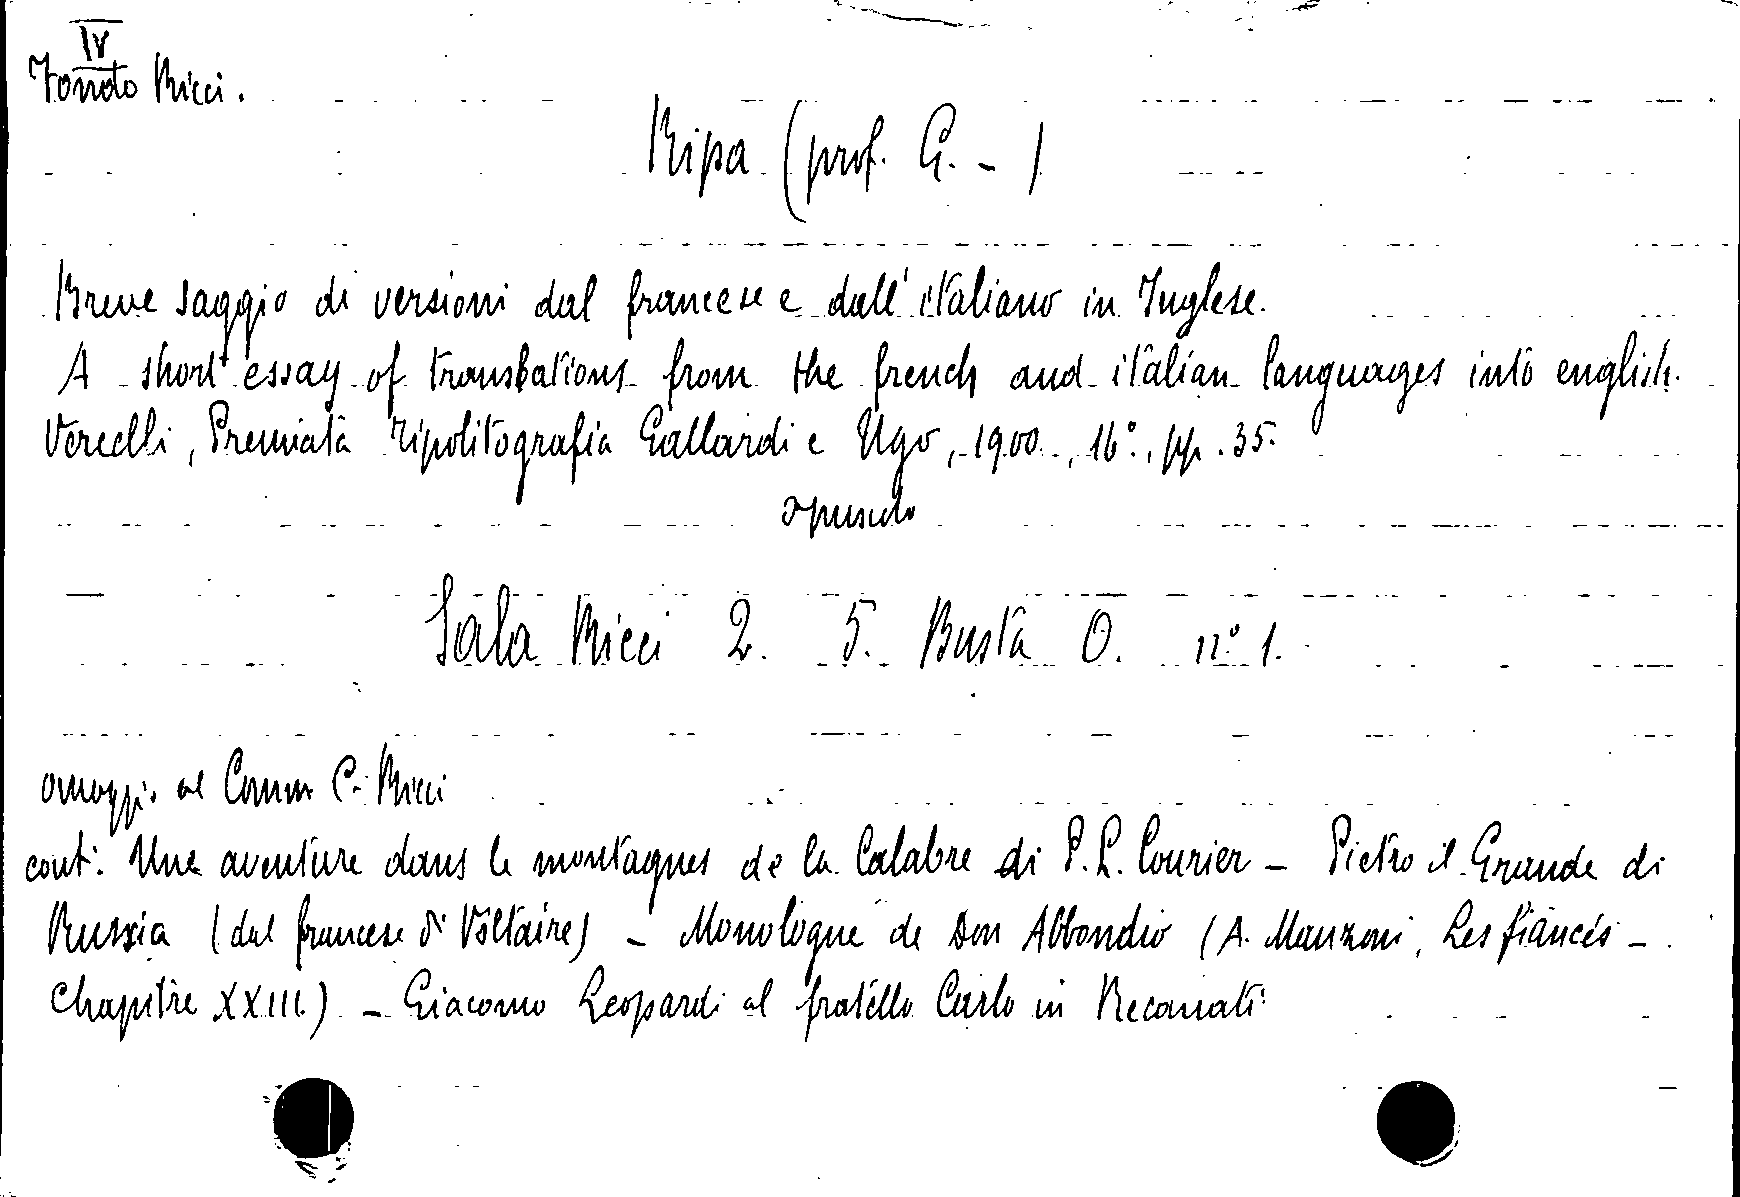 IV
Fondo Ricci.
Ripa (prof. G. - )
Breve saggio di versioni dal francese e dall'italiano in Inglese.
A short essay of translations from the french and italian languages into english.
Vercelli, Premiata Tipolitografia Gallardi e Ugo, 1900, 16°, pp. 35.
opuscolo
Sala Ricci 2. 5. Busta O. n° 1.
omaggio al Comm C. Ricci
cont: Une aventure dans le montagnes de la Calabre di P. L. Courier - Pietro il Grande di
Russia (dal francese di Voltaire) - Monologue de Don Abbondio (A. Manzoni, Les fiancés -
Chapitre XXIII.) - Giacomo Leopardi al fratello Carlo in Recanati